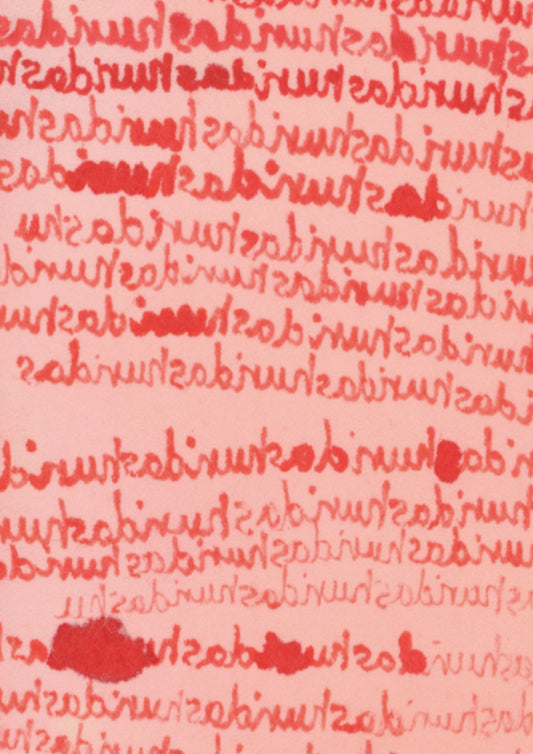 huridashuri
shuridashuridashuridas
ashuridashuridashuridash
ashuridashuridashuridashu
huridashuridashuridas
huridashuridashuridashu
uridashuridashuridashurid
huridashuridashuridashu
idashuridashuridashuridas
ridashuridashuridashurid
huridashuridashuridashu
huridashuridashuridashurida
shuridashuridashuridashu
ashuridashuridashuridas
dashuridashuridashuridashu
huridashuridashuridash